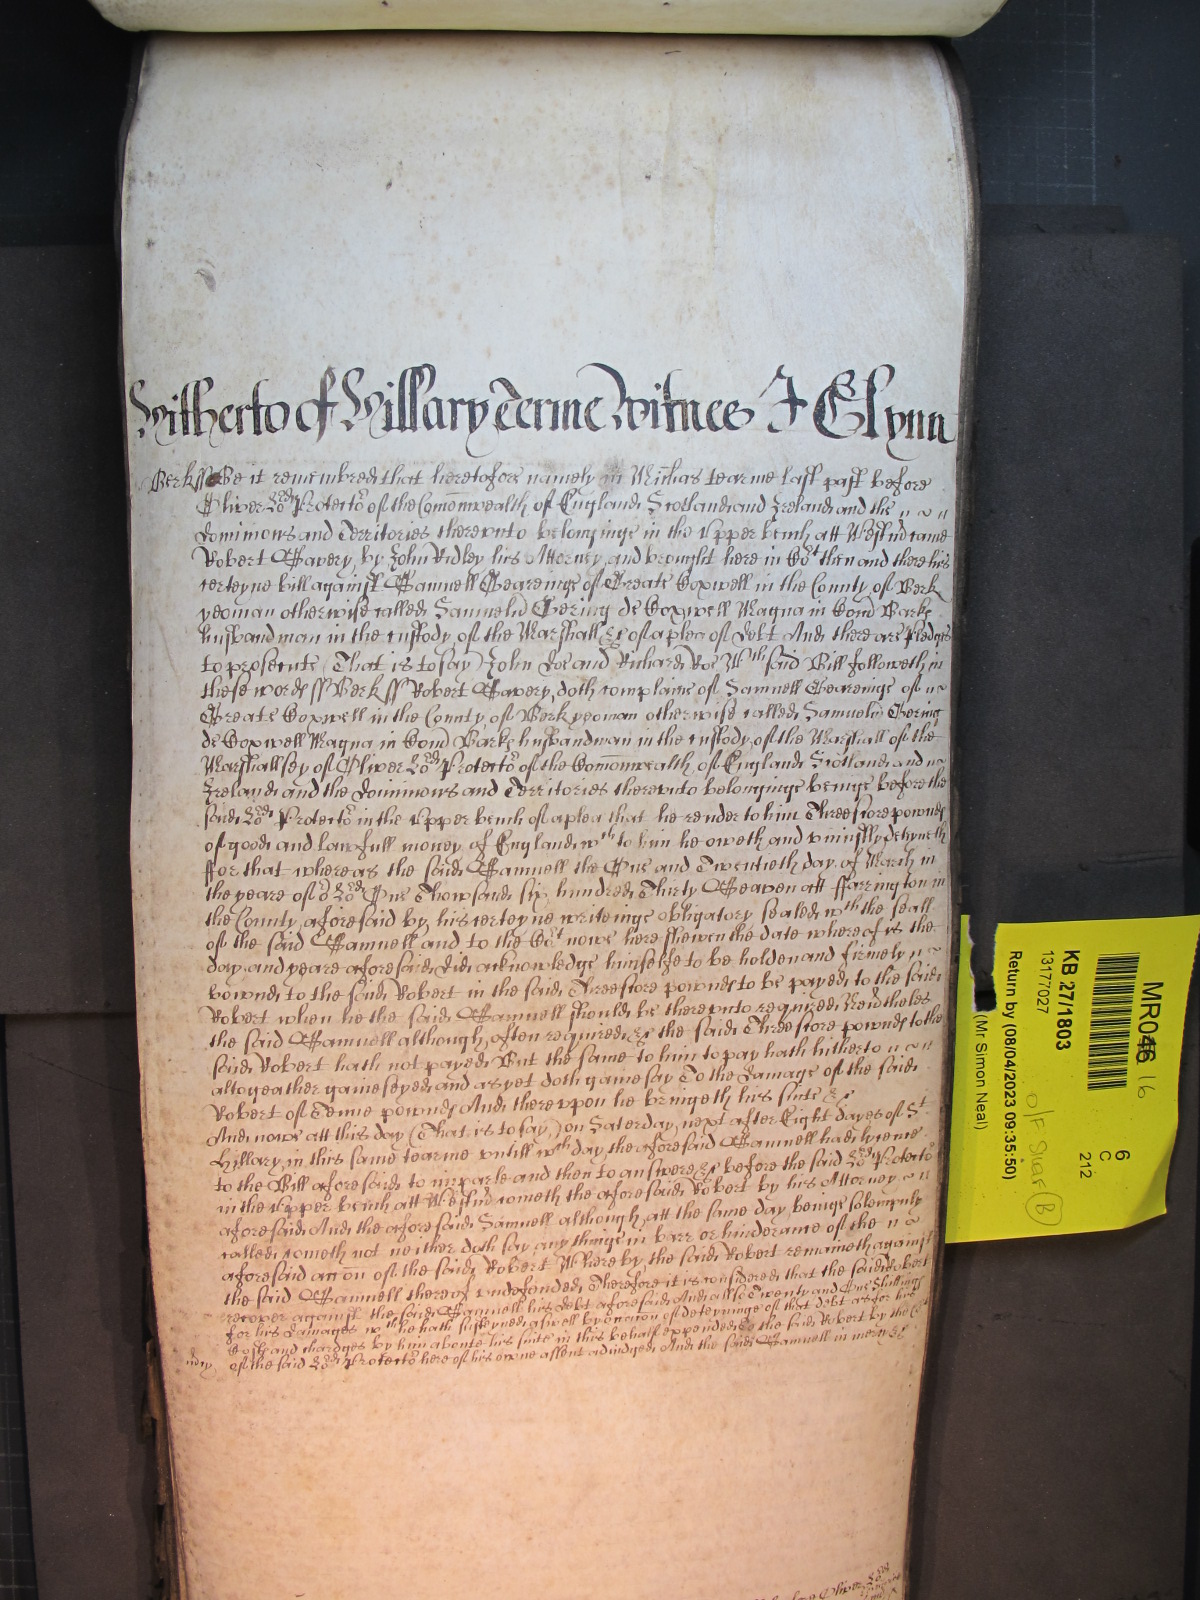 Hitherto of Hillary Terme Witnes J Glynn
Berk ss Be it remembred that heretofore namely in Michas tearme last past before
Oliver Lord Protector of the Comonwealth of England Scotland and Ireland and the
Dominions and Territories thereunto belonginge in the Upper bench att Westm came
Robert Savery by John Ridley his Attorney and brought here in Cort then and there his
certeyne bill against Samuell Gearinge of Greate Coxwell in the County of Berk
yeoman otherwise called Samuelu Gering de Coxwell Magna in Com Barke
husbandman in the custody of the Marshall &c of a plea of Debt And there are Pledges
to prosecute (That is to say) John Doe and Richard Roe Wch said Bill followeth in
these words ss Berk ss Robert Savery doth complaine of Samuell Gearinge of
Greate Coxwell in the County of Berk yeoman otherwise called Samuelu Gering
de Coxwell Magna in Com Barke husbandman in the custody of the Marshall of the
Marshallsey of Oliver Lord Protector of the Comonwealth of England Scotland and
Ireland and the Dominions and Territories thereunto belonginge beinge before the
said Lord Protector in the Upper bench of a plea that he render to him Threescore pownds
of good and lawfull money of England wch to him he oweth and uniustly deteyneth
ffor that whereas the said Samuell the One and Twentieth day of March in
the yeare of or Lord One Thowsand six hundred Thirty Seaven att ffarrington in
the County aforesaid by his certeyne writeinge obligatory sealed wth the seall
of the said Samuell and to the Cort nowe here shewen the date whereof is the
day and yeare aforesaid did acknowledge himselfe to be holden and firmely
bownd to the said Robert in the said Threescore pownds to be payed to the said
Robert when he the said Samuell should be thereunto required Nevertheles
the said Samuell although often required &c the said Threescore pownds to the
said Robert hath not payed But the same to him to pay hath hitherto
altogeather gaineseyed and as yet doth gainesay To the damage of the said
Robert of Tenne pownds And thereupon he bringeth his suite &c
And nowe att this day (That is to say) on Saterday next after Eight dayes of St
Hillary in this same tearme untill wch day the aforesaid Samuell had lycence
to the Bill aforesaid to imparle and then to answere &c before the said Lord Protector
in the Upper bench att Westm cometh the aforesaid Robert by his Attorney
aforesaid And the aforesaid Samuell although att the same day beinge solempnly
called cometh not neither doth say any thinge in barr or hinderance of the
aforesaid accon of the said Robert Whereby the said Robert remaineth against
the said Samuell thereof undefended Therefore it is considered that the said Robert
recover against the said Samuell his debt aforesaid And allso Twenty and One Shillings
for his damages wch he hath susteyned aswell by occacon of deteyninge of that debt as for his
Costs and chardges by him aboute his suite in this behalf expended to the said Robert by the Cort
of the said Lord Protector here of his owne assent adiudged And the said Samuell in mercy &c
MR046 16
6
C
212
KB 27/1803
13177027
O/F Star B
Return by (08/04/2023 09:35:50)
(Mr Simon Neal)